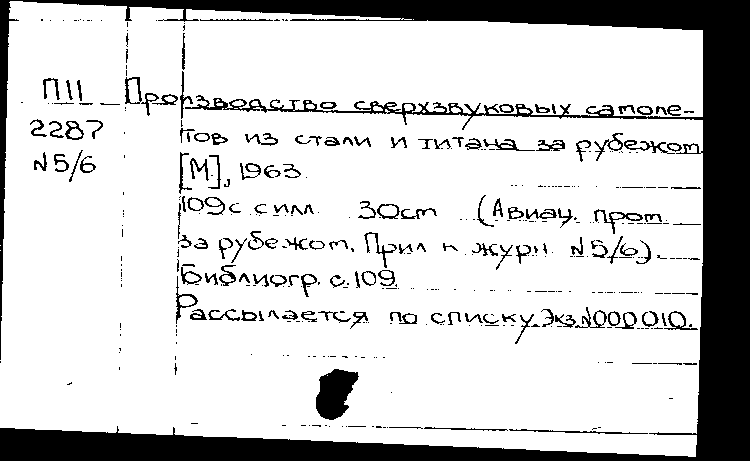 П11 Производство сверхзвуковых самоле-
2287 тов из стали и титана за рубежом
N5/6 [М], 1963
109с с илл 30см (Авиац. пром
за рубежом. Прил к журн N5/6).
Библиогр. с. 109
Рассылается по списку. Экз. N000010.